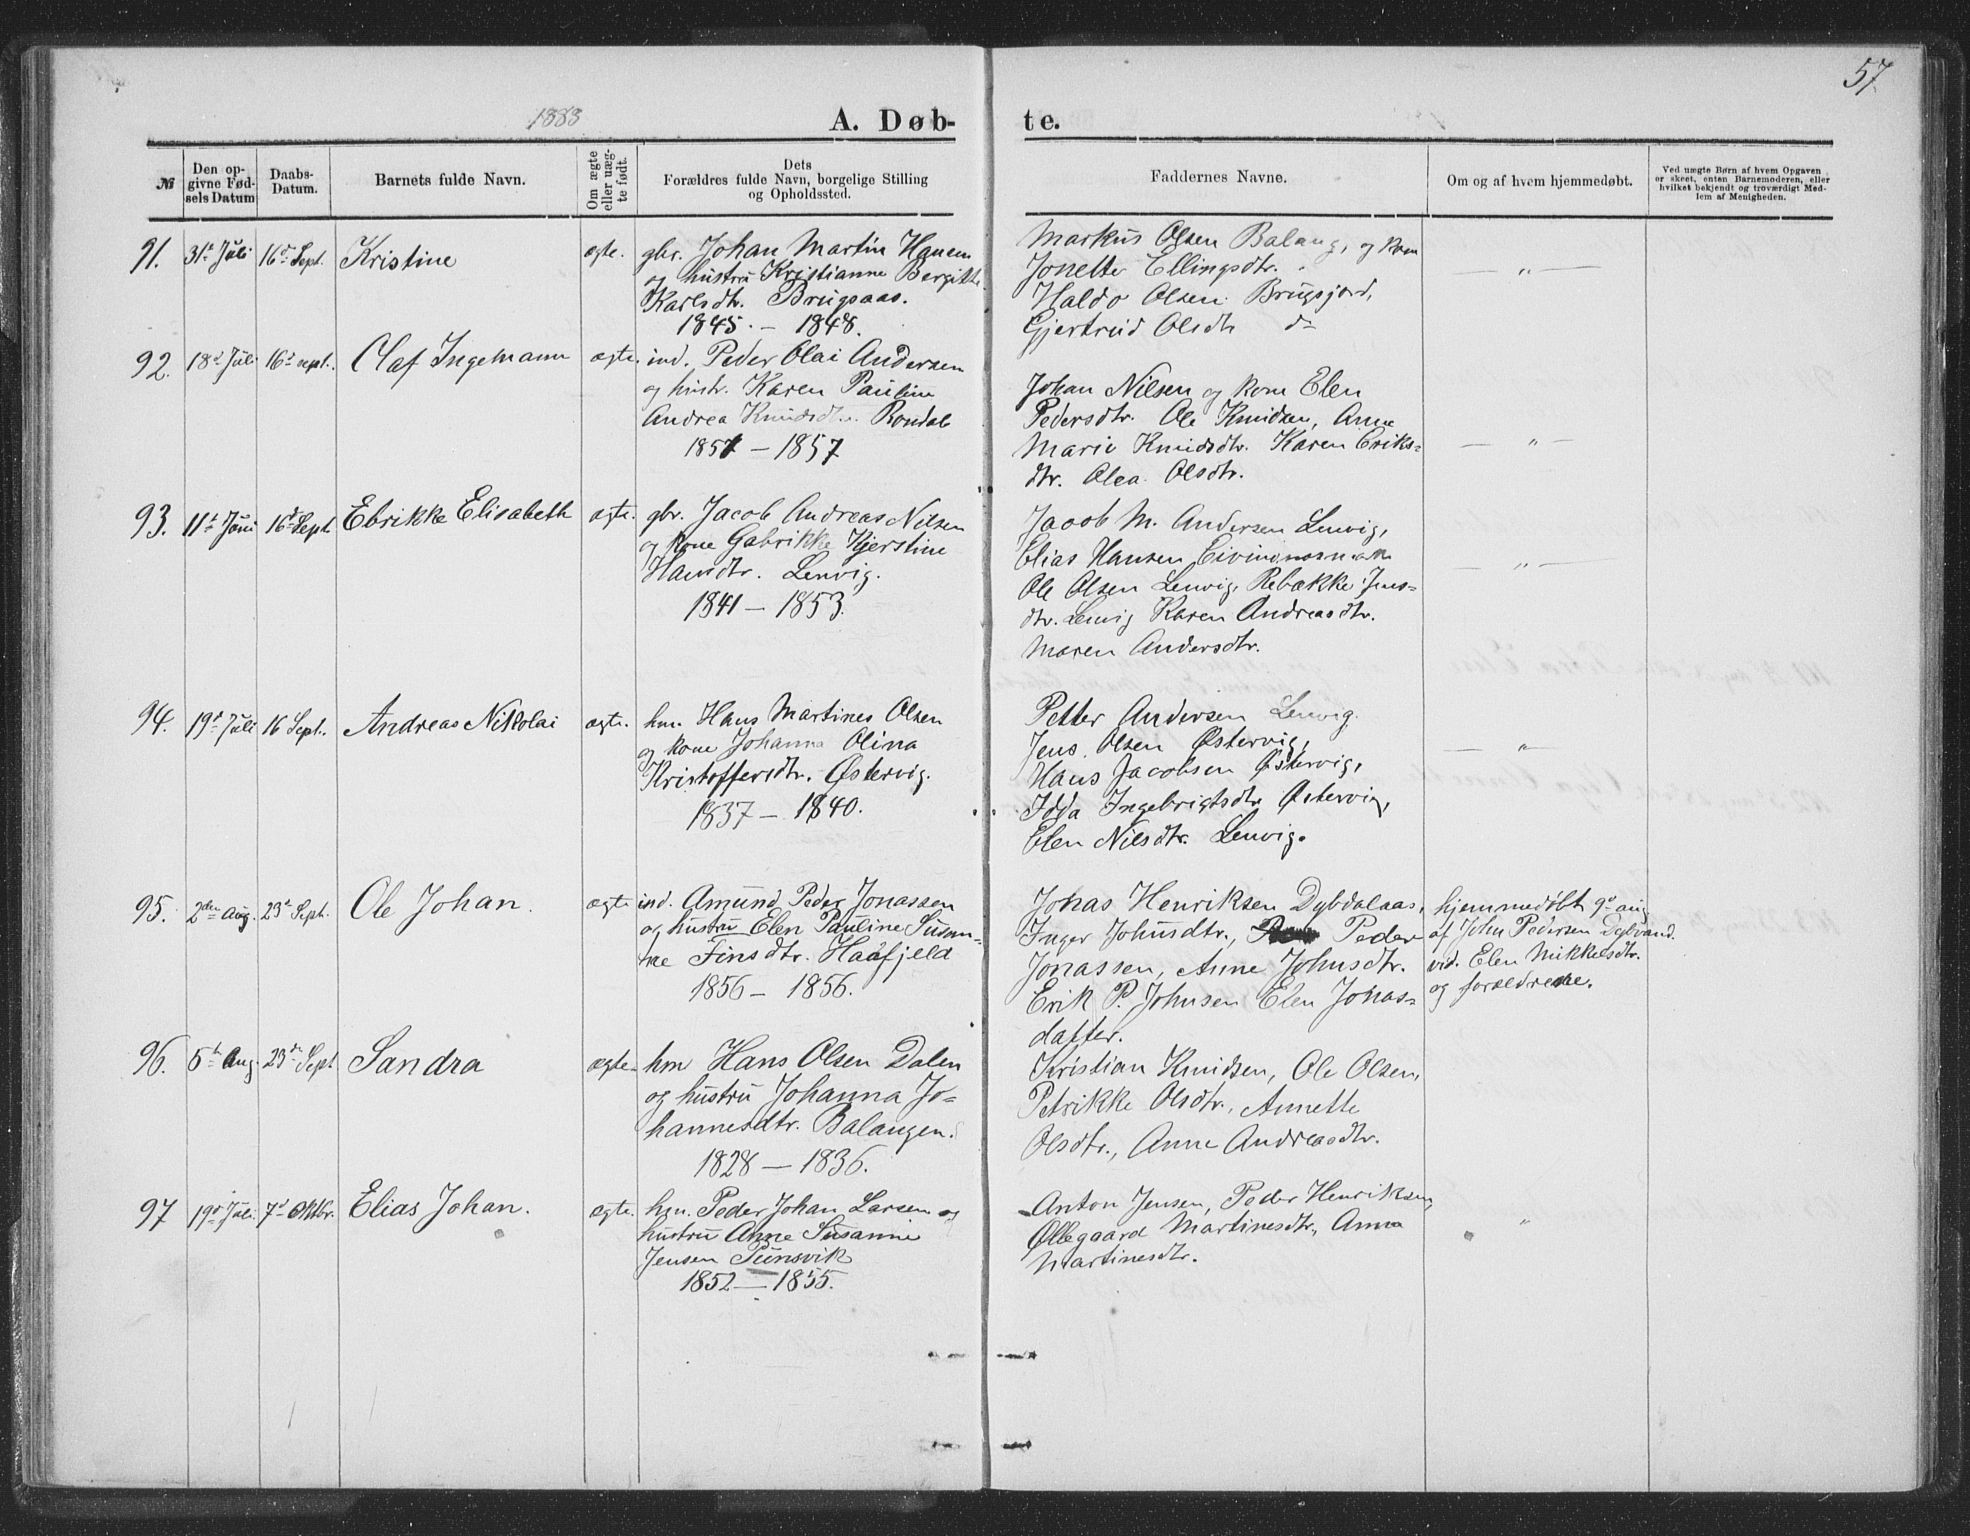 57
1883
A. Døbte.
№
Den opgivne Fødsels Datum
Daabs-Datum.
Barnets fulde Navn.
Om ægte eller uægte født.
Dets Forældres fulde Navn, borgelige Stilling og Opholdssted.
Faddernes Navne.
Om og af hvem hjemmedøbt.
Ved uægte Børn af hvem Opgaven er skeet, enten Barnemoderen, eller hvilket bekjendt og troværdigt Medlem af Menigheden.
91. 31te Juli 16de Sept. Kristine ægte. gbr. Johan Martin Hansen
og hustru Kristianne Bergitte
Karlsdtr. Brugsaas.
1845. – 1848.
Markus Olsen Balang, og kone
Jonette Ellingsdtr.
Haldo Olsen Brugsjord,
Gjertrud Olsdtr do
— „ —
92. 18de Juli 16de sept. Olaf Ingemann ægte. ind. Peder Olai Andersen
og hustr. Karen Pauline
Andrea Knudsdtr. Rondal
1857 – 1857
Johan Nilsen og kone Elen
Pedersdtr. Ole Knudsen, Anne
Marie Knudsdtr. Karen Eriks-
dtr. Olea Olsdtr.
— „ —
93. 11te Juni 16de Sept Ebrikke Elisabeth ægte. gbr. Jacob Andreas Nilsen
og kone Gabrikke Kjerstine
Hansdtr. Lenvig.
1841 – 1853.
Jacob M. Andersen Lenvig,
Elias Hansen
Ole Olsen Lenvig, Rebække Jens-
dtr. Lenvig Karen Andreasdtr.
Maren Andersdtr.
— „ —
94. 19de Juli 16 Sept. Andreas Nikolai ægte. hm. Hans Martines Olsen
og kone Johanna Olina
Kristoffersdtr. Østervig.
1837 – 1840.
Petter Andersen Lenvig.
Jens Olsen Østervig,
Hans Jacobsen Østervig,
Idda Ingebrigtsdtr Østervig,
Elen Nilsdtr. Lenvig.
— „ —
95. 2den Aug. 23de Sept. Ole Johan. ægte ind. Amund Peder Jonassen
og hustru Elen Pauline Susan-
ne Finsdtr. Haafjeld
1856 – 1856.
Johas Henriksen Dybdalaas,
Inger Johnsdtr., Peder
Jonassen, Anne Johnsdtr.
Erik P. Johnsen Elen Jonas-
datter.
hjemmedøbt 9de aug
af John Pedersen Dybvand.
vid. Elen Mikkelsdtr.
og forældrene.
96. 5te Aug. 23de Sept Sandra ægte. hm Hans Olsen Dalen
og hustru Johanna Jo-
hannesdtr. Balangen.
1828 – 1836.
Kristian Knudsen, Ole Olsen,
Petrikke Olsdtr., Annette
Olsdtr., Anne Andreasdtr.
97 19de Juli 7de Oktbr. Elias Johan. ægte. hm. Peder Johan Larsen og
hustru Anne Susanne
Jensen Punsvik
1852 – 1855.
Anton Jensen, Peder Henriksen,
Ollegaard Martinesdtr., Anna
Martinesdtr.
„